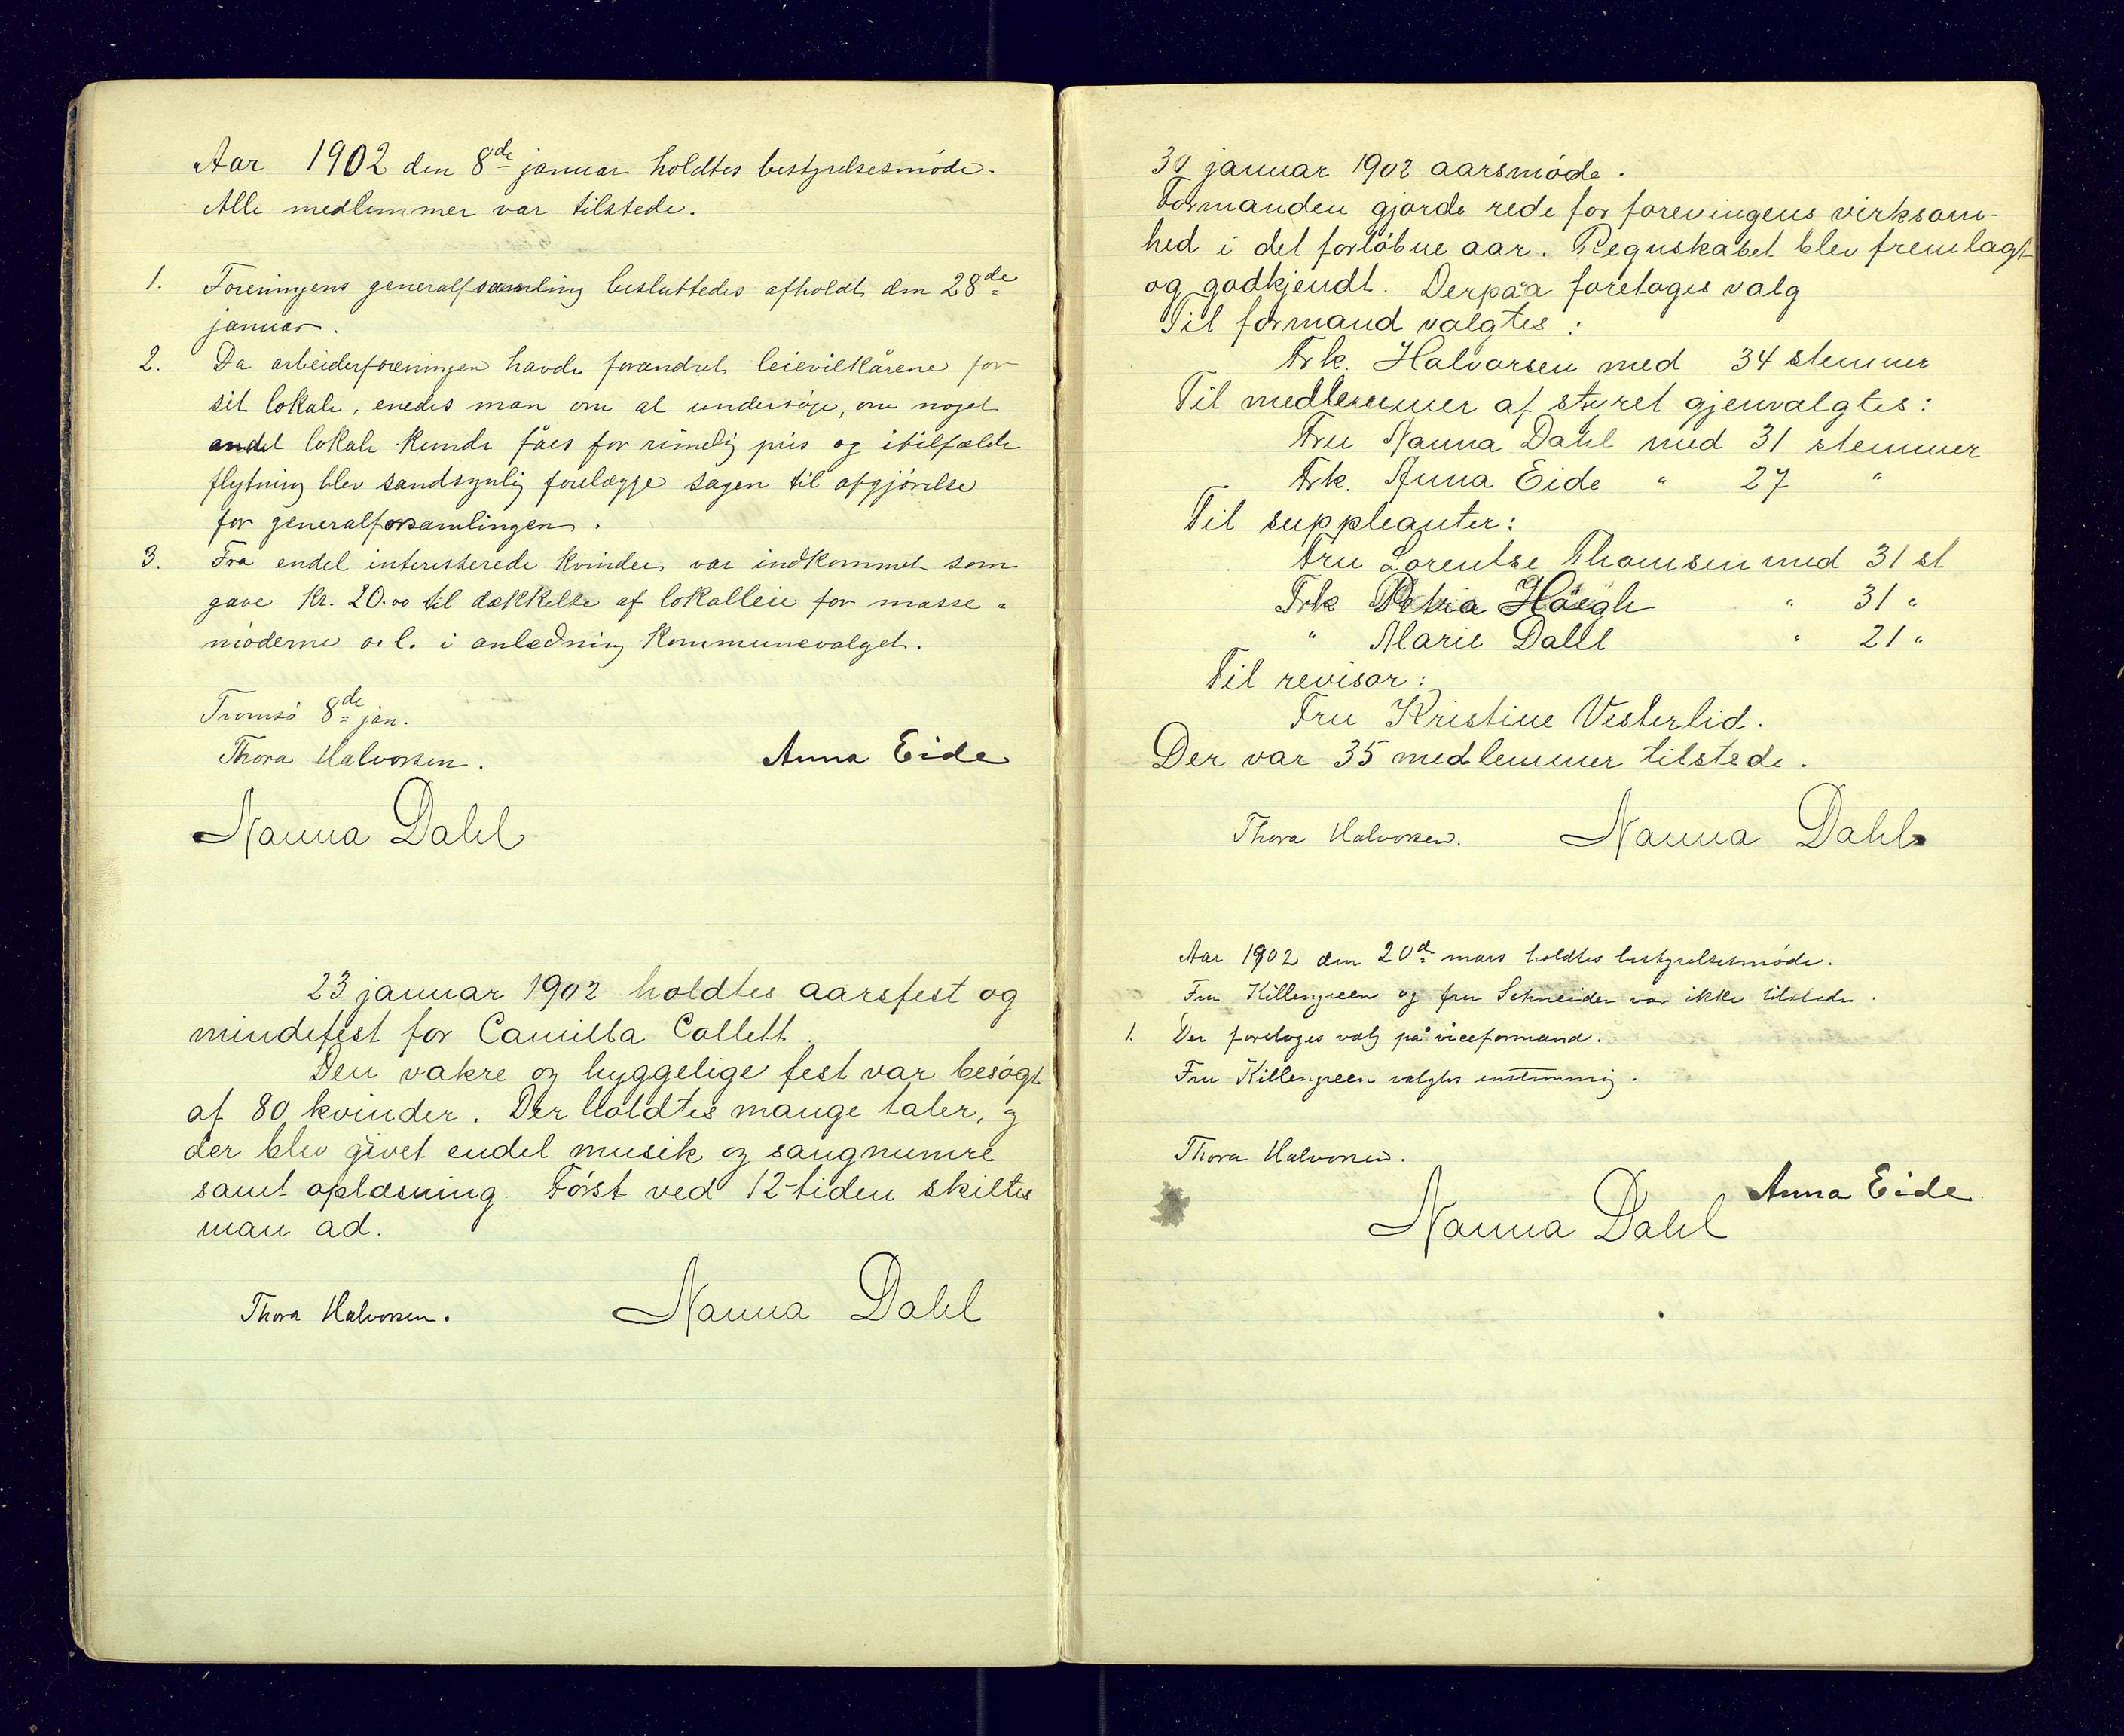 Aar 1902 den 8de januar holdtes bestyrelsesmöde.
Alle medlemmer var tilstede.
1. Foreningens generalfsamling besluttedes afholdt den 28de
januar.
2. Da arbeiderforeningen havde forandret leievilkårene for
sit lokale, enedes man om at undersöge, om noget
andet lokale kunde fåes for rimelig pris og itilfælde
flytning blev sandsynlig forelægge sagen til afgjörelse
for generalforsamlingen.
3. Fra endel interesserede kvinder var indkommet som
gave Kr. 20.00 til dækkelse af lokalleie for masse-
möderne o. l. i anledning kommunevalget.
Tromsö 8de jan.
Thora Halvorsen. Anna Eide
Nanna Dahl
23 januar 1902 holdtes aarsfest og
mindefest for Camilla Collett.
Den vakre og hyggelige fest var besögt
af 80 kvinder. Der holdtes mange taler, og
der blev givet endel musik og sangnumre
samt oplæsning. Först ved 12-tiden skiltes
man ad.
Thora Halvorsen. Nanna Dahl
30 januar 1902 aarsmöde.
Formanden gjorde rede for foreningens virksom-
hed i det forlöbne aar. Regnskabet blev fremlagt
og godkjendt. Derpaa foretoges valg
Til formand valgtes:
Frk. Halvorsen med 34 stemmer
Til medlemmer af styret gjenvalgtes:
Fru Nanna Dahl med 31 stemmer
Frk. Anna Eide " 27 "
Til suppleanter:
Fru Lorentse Thomsen med 31 st
Frk Petra Höegh " 31 "
" Marie Dahl " 21 "
Til revisor:
Fru Kristine Vesterlid.
Der var 35 medlemmer tilstede.
Thora Halvorsen. Nanna Dahl
Aar 1902 den 20de mars holdtes bestyrelsesmöde.
Fru Killengreen og fru Schneider var ikke tilstede.
1. Der foretoges valg på viceformand.
Fru Killengreen valgtes enstemmig.
Thora Halvorsen.
Anna Eide
Nanna Dahl